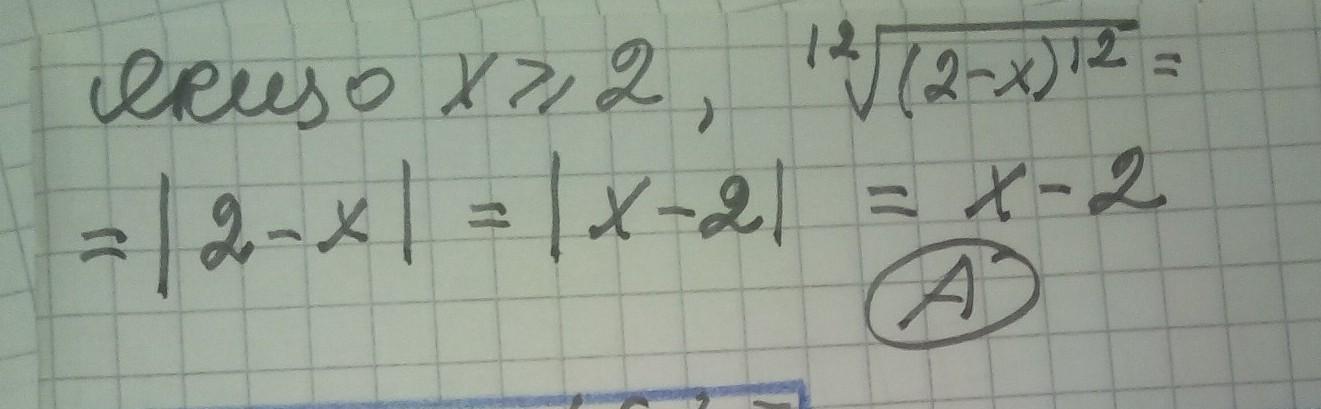 якщо x ⩾ 2, ¹²√(2-x)¹² =
= |2-x| = |x-2| = x-2
A